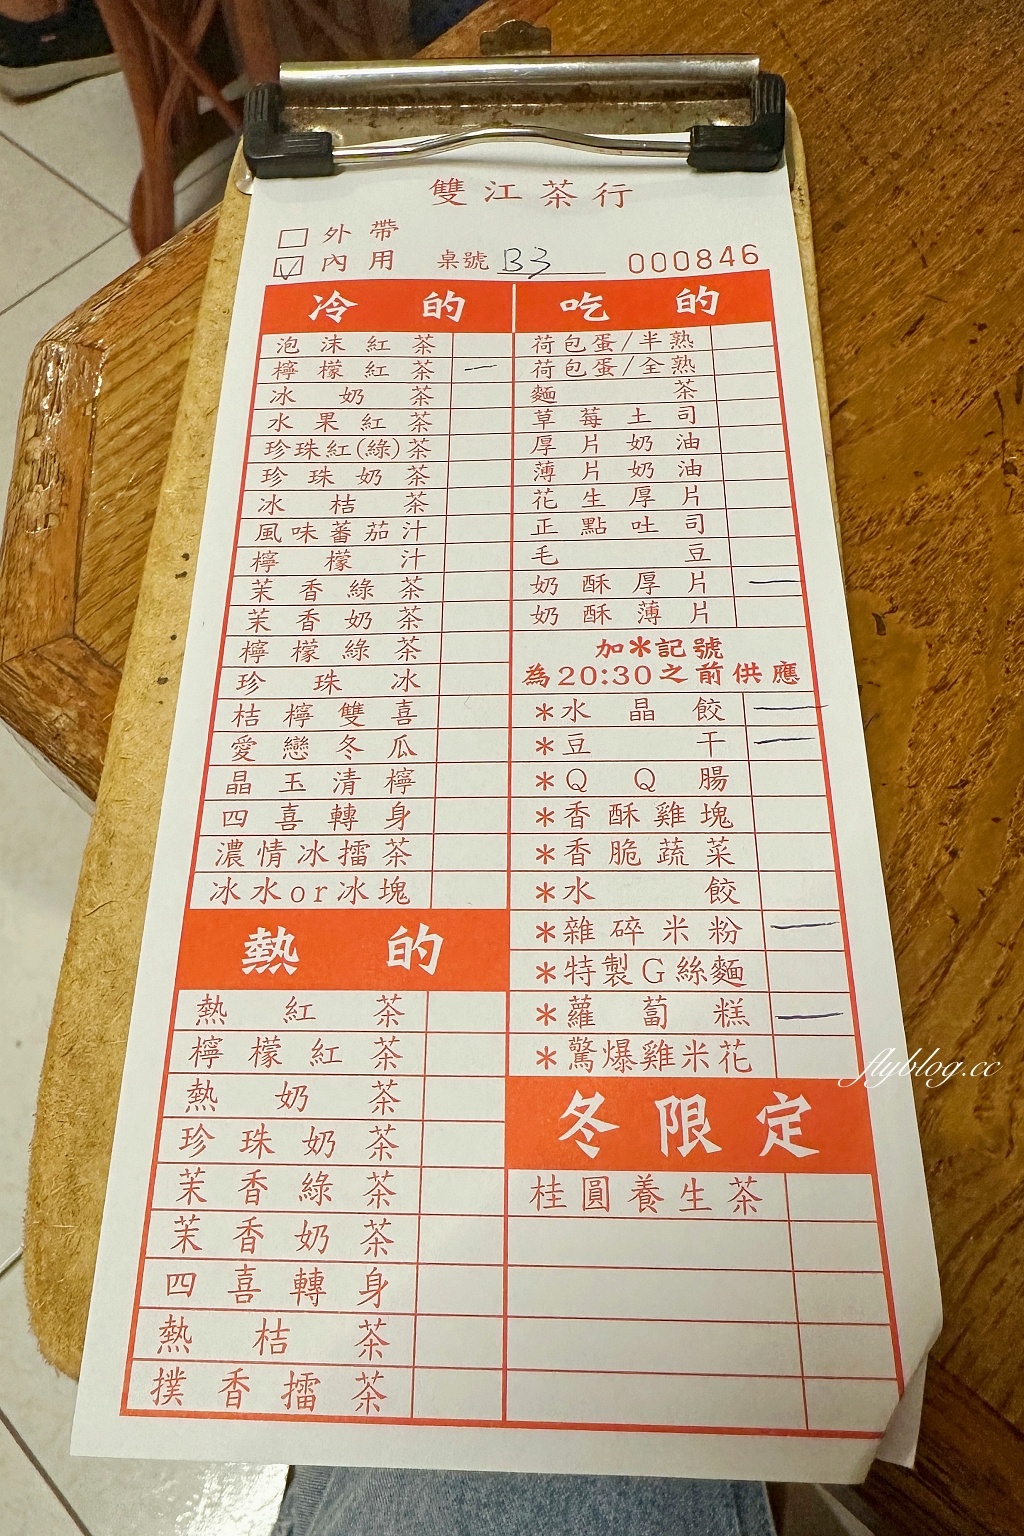 雙江茶行
外帶
內用 桌號 B3 000846
冷的
泡沫紅茶
檸檬紅茶 一
冰奶茶
水果紅茶
珍珠紅(綠)茶
珍珠奶茶
冰桔茶
風味蕃茄汁
檸檬汁
茉香綠茶
茉香奶茶
檸檬綠茶
珍珠冰
桔檸雙喜
愛戀冬瓜
晶玉清檸
四喜轉身
濃情冰擂茶
冰水or冰塊
熱的
熱紅茶
檸檬紅茶
熱奶茶
珍珠奶茶
茉香綠茶
茉香奶茶
四喜轉身
熱桔茶
撲香擂茶
吃的
荷包蛋/半熟
荷包蛋/全熟
麵茶
草莓土司
厚片奶油
薄片奶油
花生厚片
正點吐司
毛豆
奶酥厚片 一
奶酥薄片
加*記號
為20:30之前供應
*水晶餃 一
*豆干 一
*QQ腸
*香酥雞塊
*香脆蔬菜
*水餃
*雜碎米粉 一
*特製G絲麵
*蘿蔔糕 一
*驚爆雞米花
冬限定
桂圓養生茶
flyblog.cc